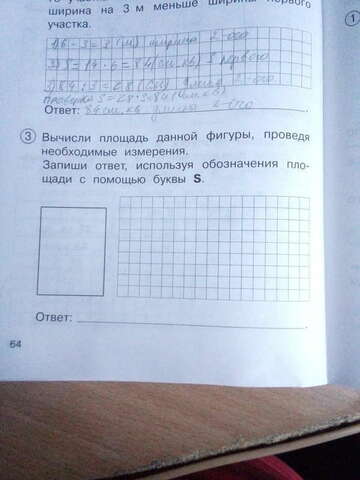 ширина на 3 м меньше ширины первого
участка.
1) 6 - 3 = 3 (м) ширина 2-ого
2) S = 14 · 6 = 84 (м.кв) S первого
3) 84 : 3 = 28 (м) 2-ого
проверка S = 28·3=84
Ответ: 84 м.кв длина 2-ого
3 Вычисли площадь данной фигуры, проведя
необходимые измерения.
Запиши ответ, используя обозначения пло-
щади с помощью буквы S.
Ответ:
64
1